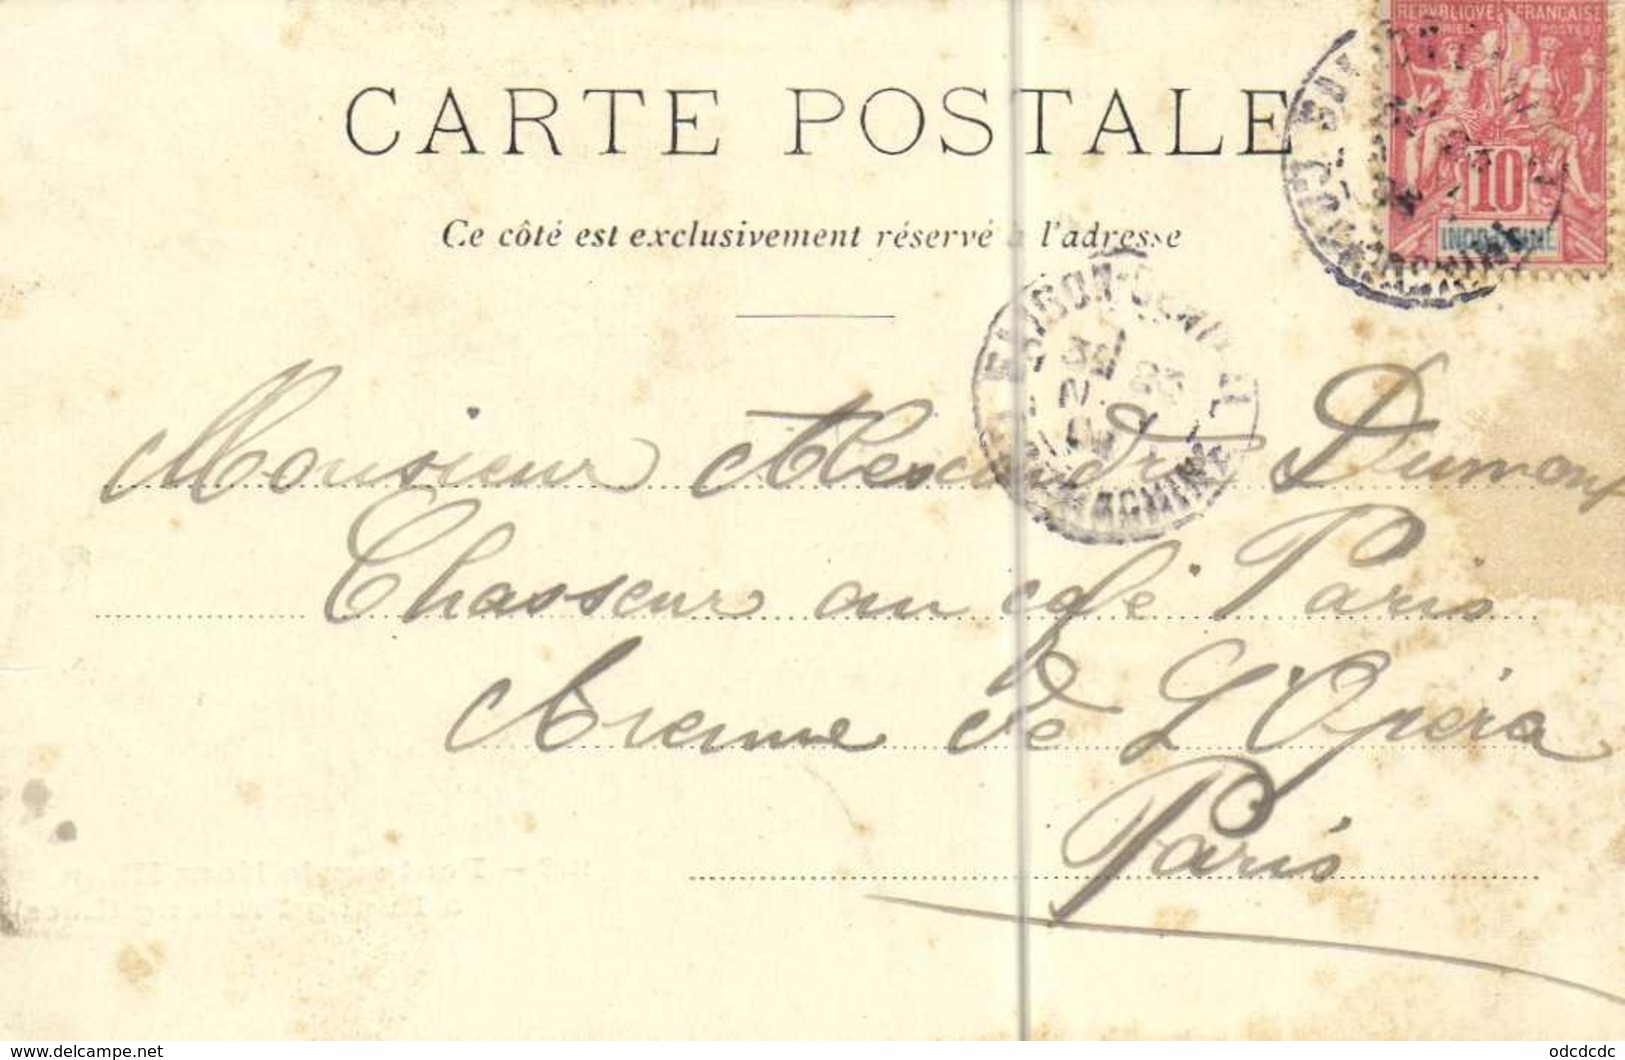 REPVBLIQVE FRANÇAISE
10
INDO-CHINE
CARTE POSTALE
Ce côté est exclusivement réservé à l'adresse
SAIGON-CENTRAL
COCHINCHINE
Monsieur Alexandre Dumont
Chasseur au café Paris
Avenue de L'Opéra
Paris
www.delcampe.net
odcdcdc